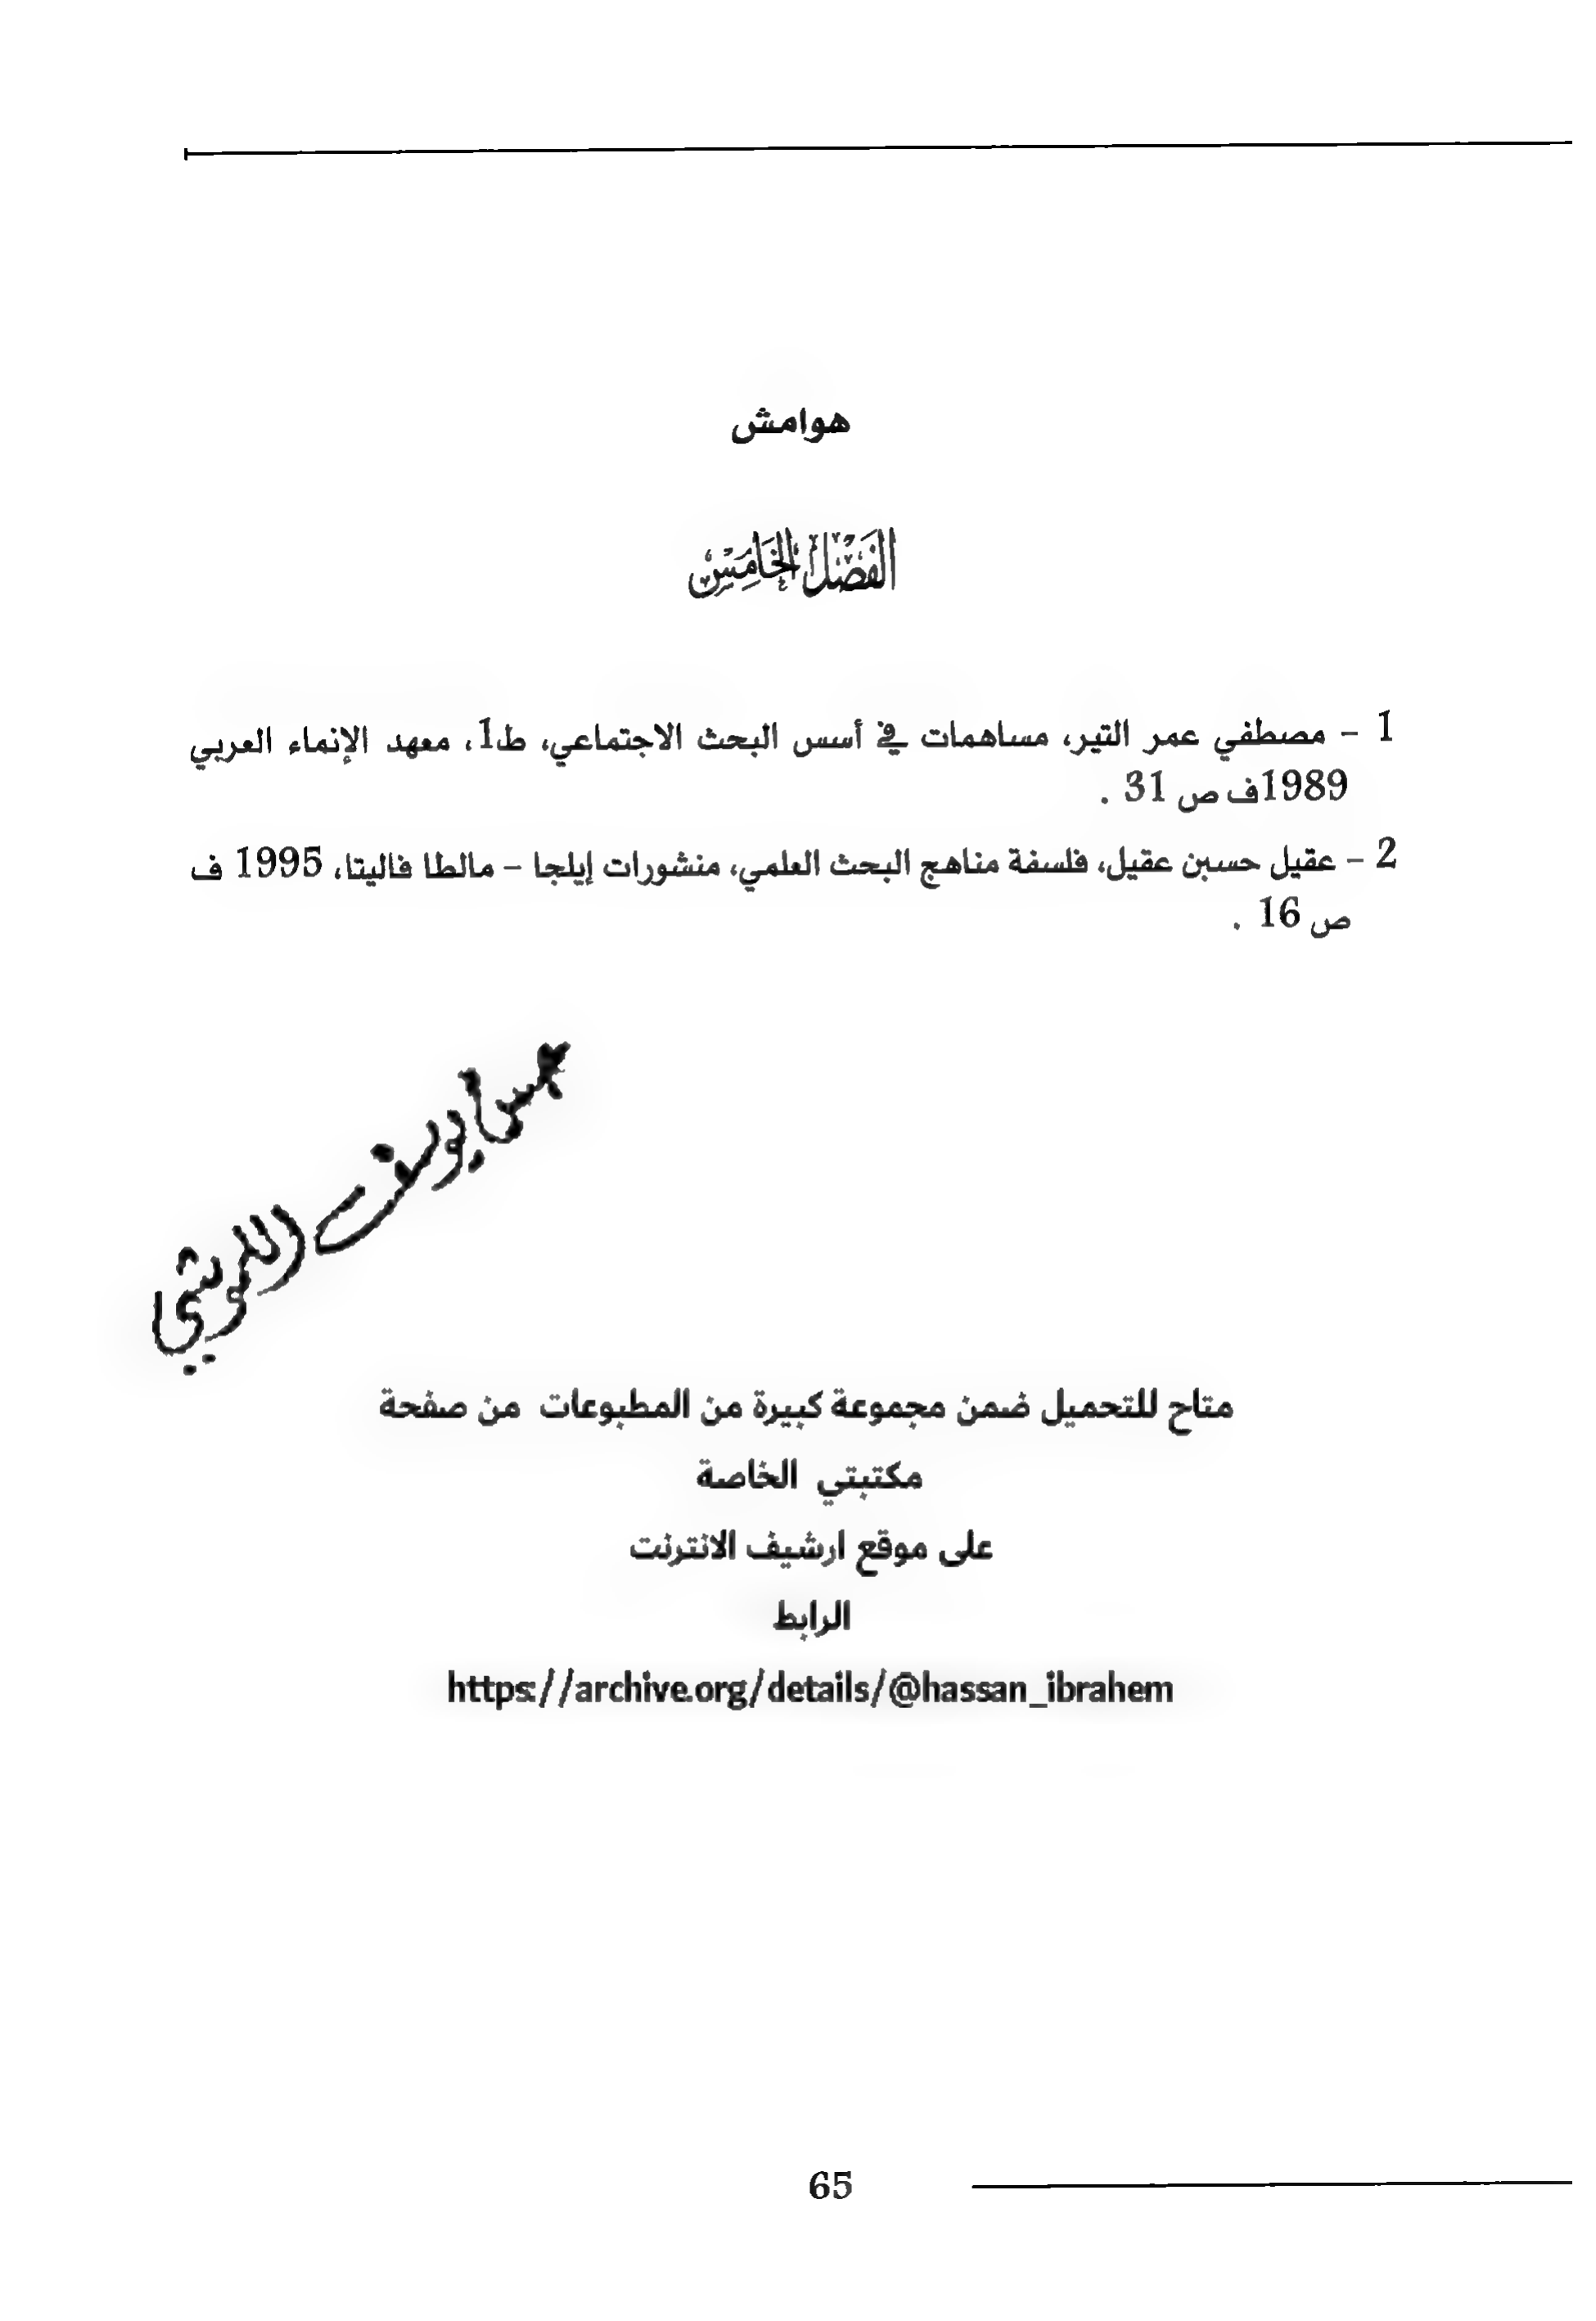 هوامش
الفَصْلُ الخَامِسُ
1 - مصطفي عمر التير، مساهمات في أسس البحث الاجتماعي، ط1، معهد الإنماء العربي
1989ف ص 31 .
2 - عقيل حسين عقيل، فلسفة مناهج البحث العلمي، منشورات إيلجا - مالطا فاليتا، 1995 ف
ص 16 .
متاح للتحميل ضمن مجموعة كبيرة من المطبوعات من صفحة
مكتبتي الخاصة
على موقع ارشيف الانترنت
الرابط
https://archive.org/details/@hassan_ibrahem
65